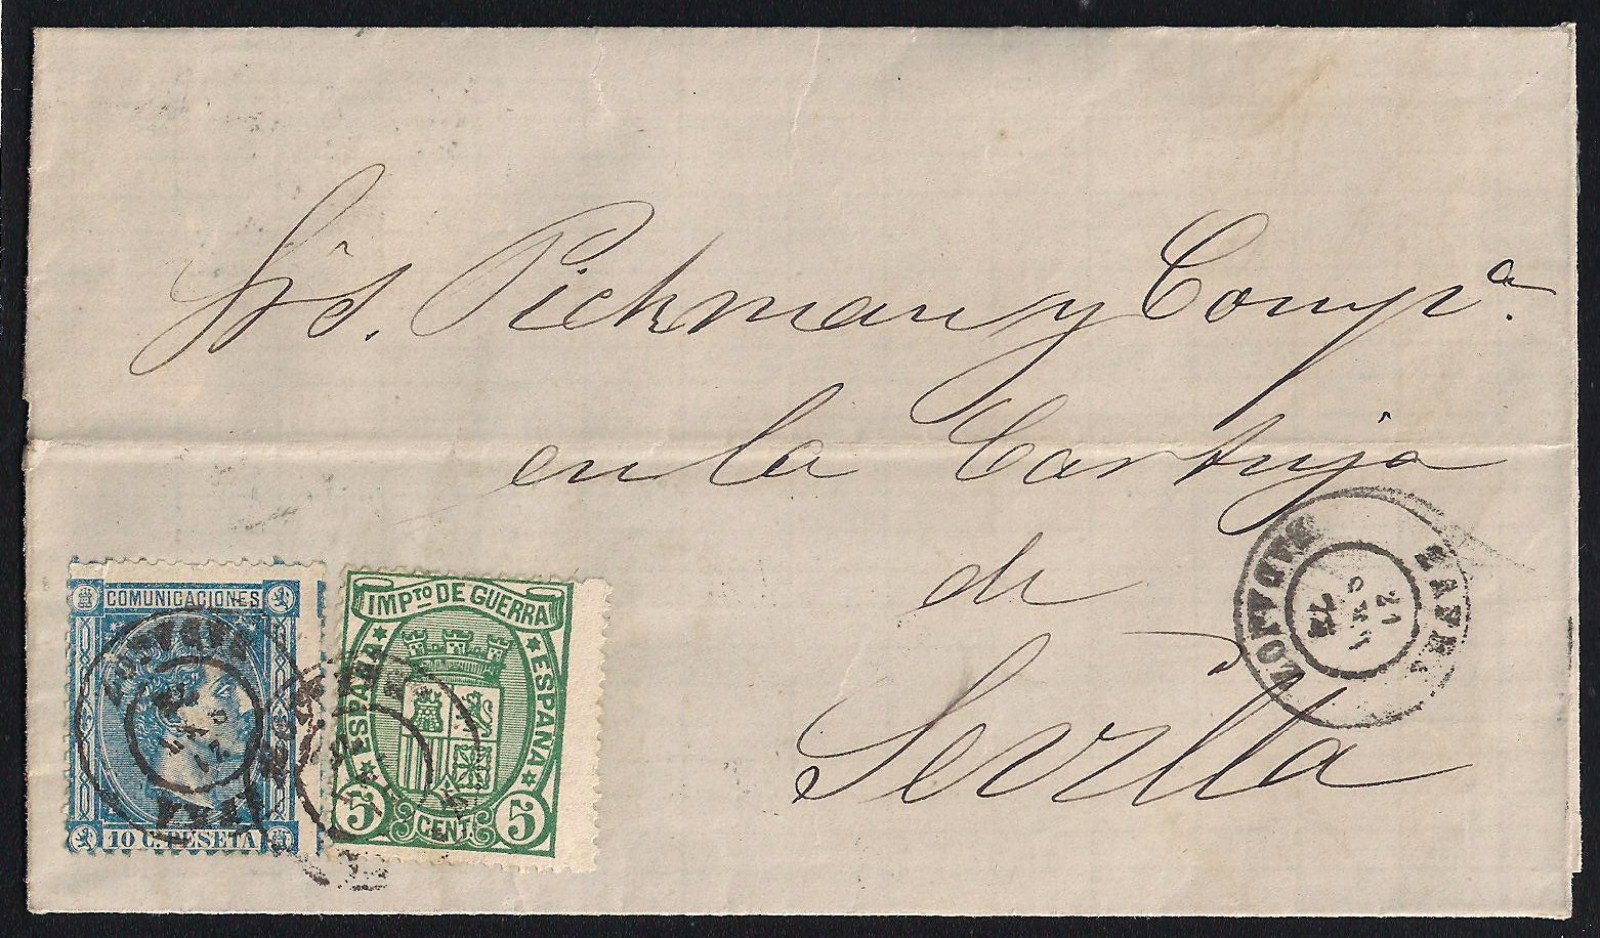 Srs. Pickman y Compª.
en la Cartuja
de
Sevilla
COMUNICACIONES
10 C. PESETA
IMPTO DE GUERRA
ESPAÑA
ESPAÑA
5 CENT. 5
ZAFRA
BADAJOZ